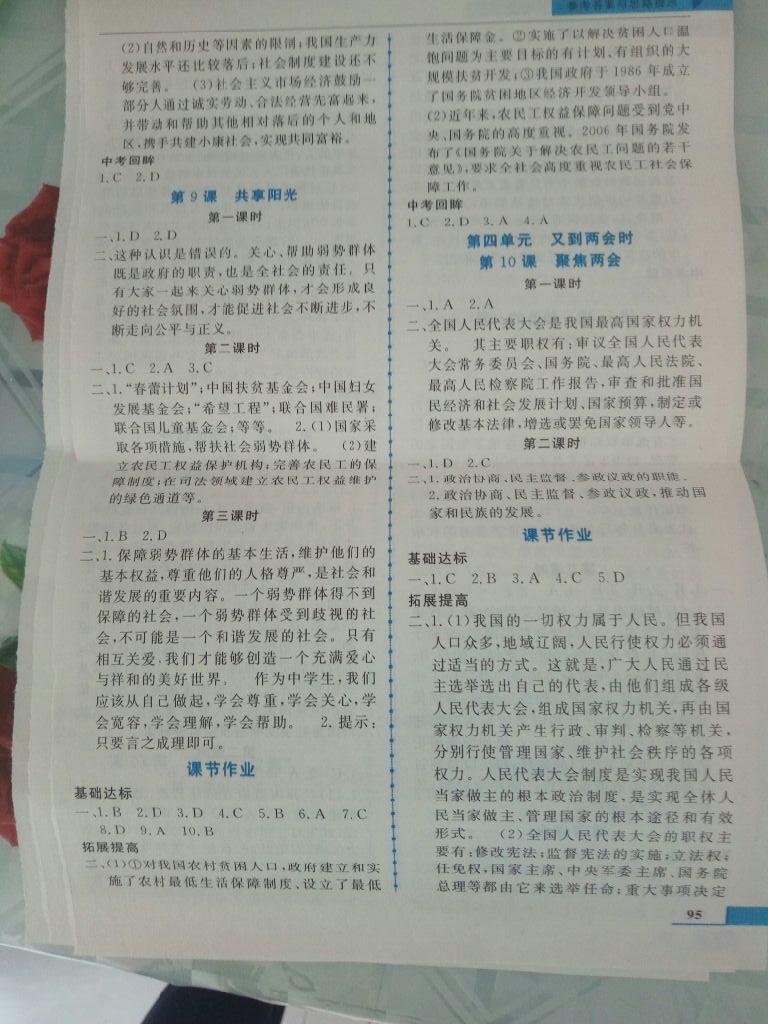 参考答案与思路提示
(2)自然和历史等因素的限制;我国生产力
发展水平还比较落后;社会制度建设还不
够完善。 (3)社会主义市场经济鼓励一
部分人通过诚实劳动、合法经营先富起来,
并带动和帮助其他相对落后的个人和地
区,携手共建小康社会,实现共同富裕。
中考回眸
1.C 2.D
第9课 共享阳光
第一课时
一、1.D 2.D
二、这种认识是错误的。关心、帮助弱势群体
既是政府的职责,也是全社会的责任。只
有大家一起来关心弱势群体,才会形成良
好的社会氛围,才能促进社会不断进步,不
断走向公平与正义。
第二课时
一、1.C 2.A 3.C
二、1.“春蕾计划”;中国扶贫基金会;中国妇女
发展基金会;“希望工程”;联合国难民署;
联合国儿童基金会;等等。 2.(1)国家采
取各项措施,帮扶社会弱势群体。 (2)建
立农民工权益保护机构;完善农民工的保
障制度;在司法领域建立农民工权益维护
的绿色通道等。
第三课时
一、1.B 2.D
二、1.保障弱势群体的基本生活,维护他们的
基本权益,尊重他们的人格尊严,是社会和
谐发展的重要内容。一个弱势群体得不到
保障的社会,一个弱势群体受到歧视的社
会,不可能是一个和谐发展的社会。只有
相互关爱,我们才能够创造一个充满爱心
与祥和的美好世界。 作为中学生,我们
应该从自己做起,学会尊重,学会关心,学
会宽容,学会理解,学会帮助。 2.提示:
只要言之成理即可。
课节作业
基础达标
一、1.B 2.D 3.D 4.C 5.B 6.A 7.C
8.D 9.A 10.B
拓展提高
二、(1)①对我国农村贫困人口,政府建立和实
施了农村最低生活保障制度、设立了最低
生活保障金。②实施了以解决贫困人口温
饱问题为主要目标的有计划、有组织的大
规模扶贫开发;③我国政府于1986年成立
了国务院贫困地区经济开发领导小组。
(2)近年来,农民工权益保障问题受到党中
央、国务院的高度重视。2006年国务院发
布了《国务院关于解决农民工问题的若干
意见》,要求全社会高度重视农民工社会保
障工作。
中考回眸
1.C 2.D 3.A 4.A
第四单元 又到两会时
第10课 聚焦两会
第一课时
一、1.A 2.A
二、全国人民代表大会是我国最高国家权力机
关。 其主要职权有:审议全国人民代表
大会常务委员会、国务院、最高人民法院、
最高人民检察院工作报告,审查和批准国
民经济和社会发展计划、国家预算,制定或
修改基本法律,增选或罢免国家领导人等。
第二课时
一、1.D 2.C
二、1.政治协商、民主监督、参政议政的职能。
2.政治协商、民主监督、参政议政,推动国
家和民族的发展。
课节作业
基础达标
一、1.C 2.B 3.A 4.C 5.D
拓展提高
二、1.(1)我国的一切权力属于人民。但我国
人口众多,地域辽阔,人民行使权力必须通
过适当的方式。这就是,广大人民通过民
主选举选出自己的代表,由他们组成各级
人民代表大会,组成国家权力机关,再由国
家权力机关产生行政、审判、检察等机关,
分别行使管理国家、维护社会秩序的各项
权力。人民代表大会制度是实现我国人民
当家做主的根本政治制度,是实现全体人
民当家做主、管理国家的根本途径和有效
形式。 (2)全国人民代表大会的职权主
要有:修改宪法;监督宪法的实施;立法权;
任免权,国家主席、中央军委主席、国务院
总理等都由它来选举任命;重大事项决定
95